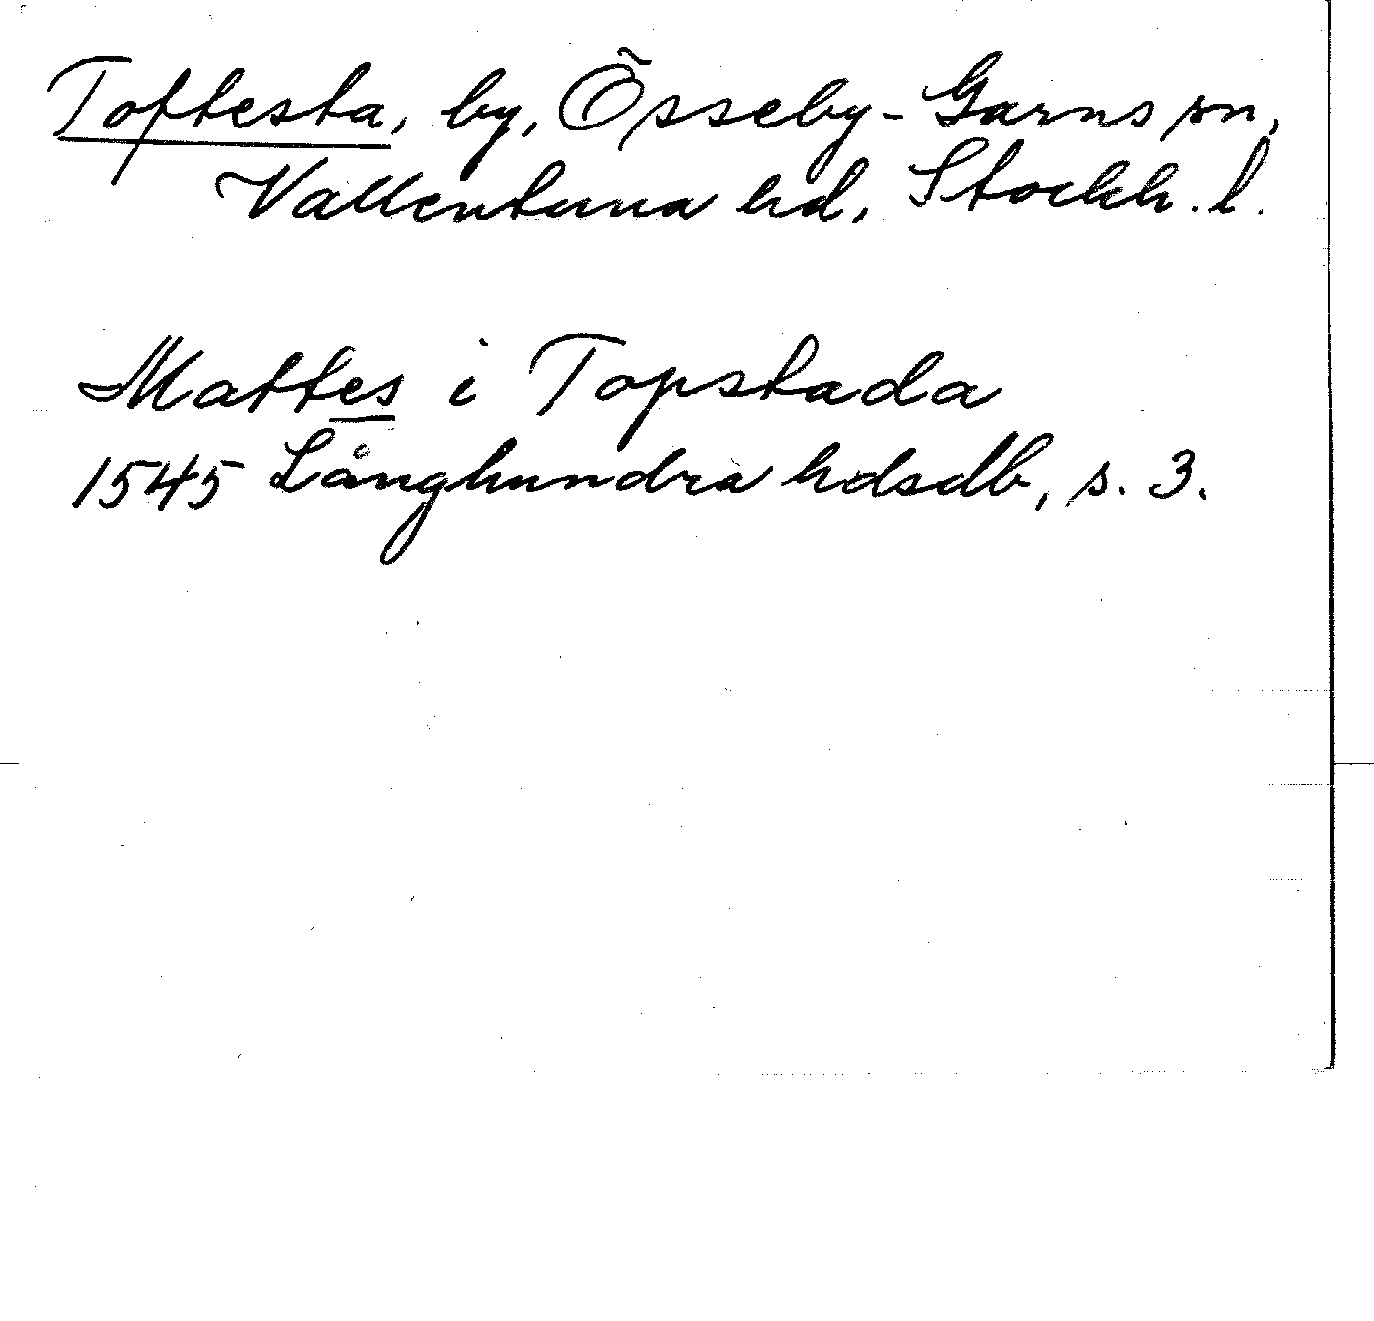 Toftesta, by, Össeby-Garns sn,
Vallentuna hd, Stockh. l.
Mattes i Topstada
1545 Långhundra hdsdb, s. 3.